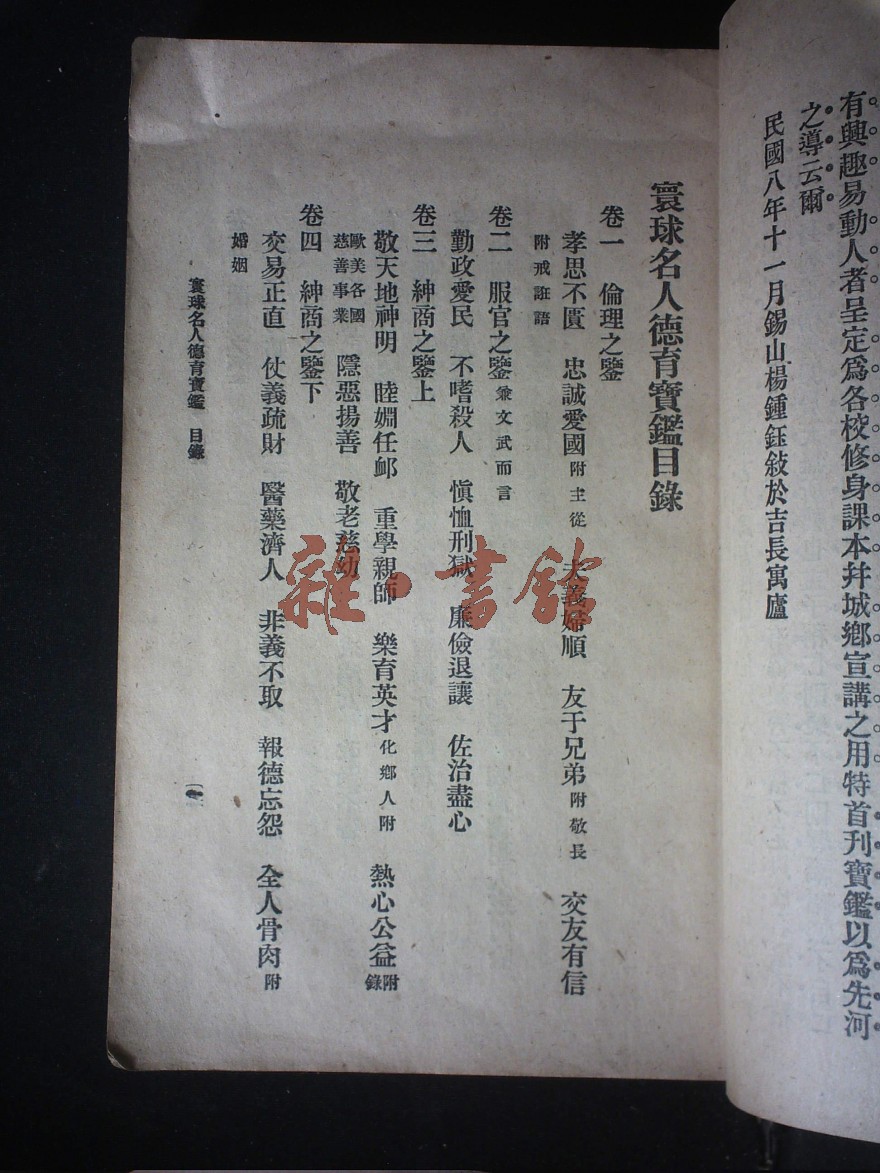 有興趣易動人者呈定爲各校修身課本幷城鄉宣講之用特首刋寶鑑以爲先河
之導云爾
民國八年十一月錫山楊鍾鈺敍於吉長寓廬
寰球名人德育寶鑑目錄
卷一 倫理之鑒
孝思不匱 忠誠愛國附主從 夫義婦順 友于兄弟附敬長 交友有信
附戒誑語
卷二 服官之鑒兼文武而言
勤政愛民 不嗜殺人 愼恤刑獄 廉儉退讓 佐治盡心
卷三 紳商之鑒上
敬天地神明 睦婣任卹 重學親師 樂育英才化鄉人附 熱心公益附錄
歐美各國慈善事業 隱惡揚善 敬老慈幼
卷四 紳商之鑒下
交易正直 仗義疏財 醫藥濟人 非義不取 報德忘怨 全人骨肉附
婚姻
寰球名人德育寶鑑 目錄 一
雜·書館